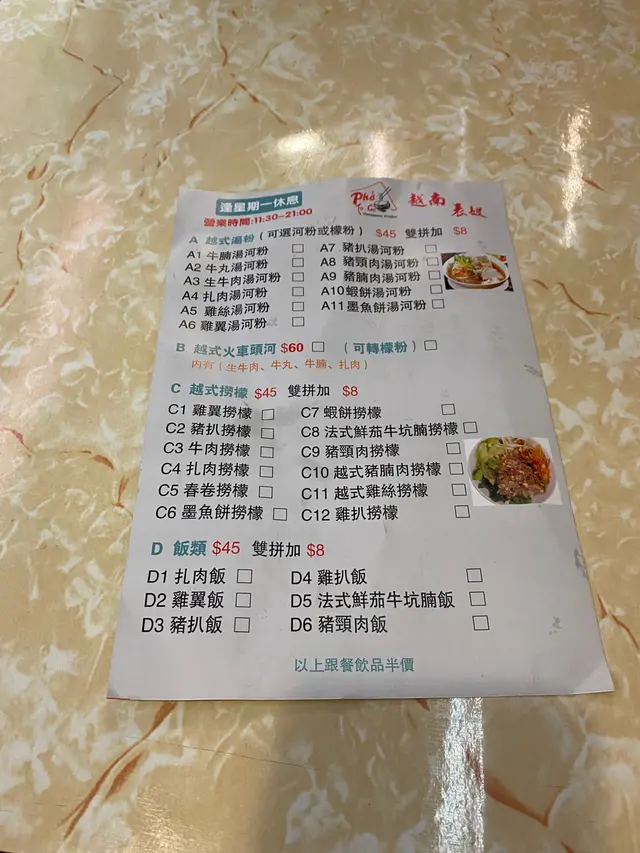 逢星期一休息
營業時間:11:30-21:00
Phở
To Go
越南表姐
A 越式湯粉（可選河粉或檬粉） $45 雙拼加 $8
A1 牛腩湯河粉 □
A2 牛丸湯河粉 □
A3 生牛肉湯河粉 □
A4 扎肉湯河粉 □
A5 雞絲湯河粉 □
A6 雞翼湯河粉 □
A7 豬扒湯河粉 □
A8 豬頸肉湯河粉 □
A9 豬腩肉湯河粉 □
A10 蝦餅湯河粉 □
A11 墨魚餅湯河粉 □
B 越式火車頭河 $60 □ （可轉檬粉）□
內有（生牛肉、牛丸、牛腩、扎肉）
C 越式撈檬 $45 雙拼加 $8
C1 雞翼撈檬 □
C2 豬扒撈檬 □
C3 牛肉撈檬 □
C4 扎肉撈檬 □
C5 春卷撈檬 □
C6 墨魚餅撈檬 □
C7 蝦餅撈檬 □
C8 法式鮮茄牛坑腩撈檬 □
C9 豬頸肉撈檬 □
C10 越式豬腩肉撈檬 □
C11 越式雞絲撈檬 □
C12 雞扒撈檬 □
D 飯類 $45 雙拼加 $8
D1 扎肉飯 □
D2 雞翼飯 □
D3 豬扒飯 □
D4 雞扒飯 □
D5 法式鮮茄牛坑腩飯 □
D6 豬頸肉飯 □
以上跟餐飲品半價